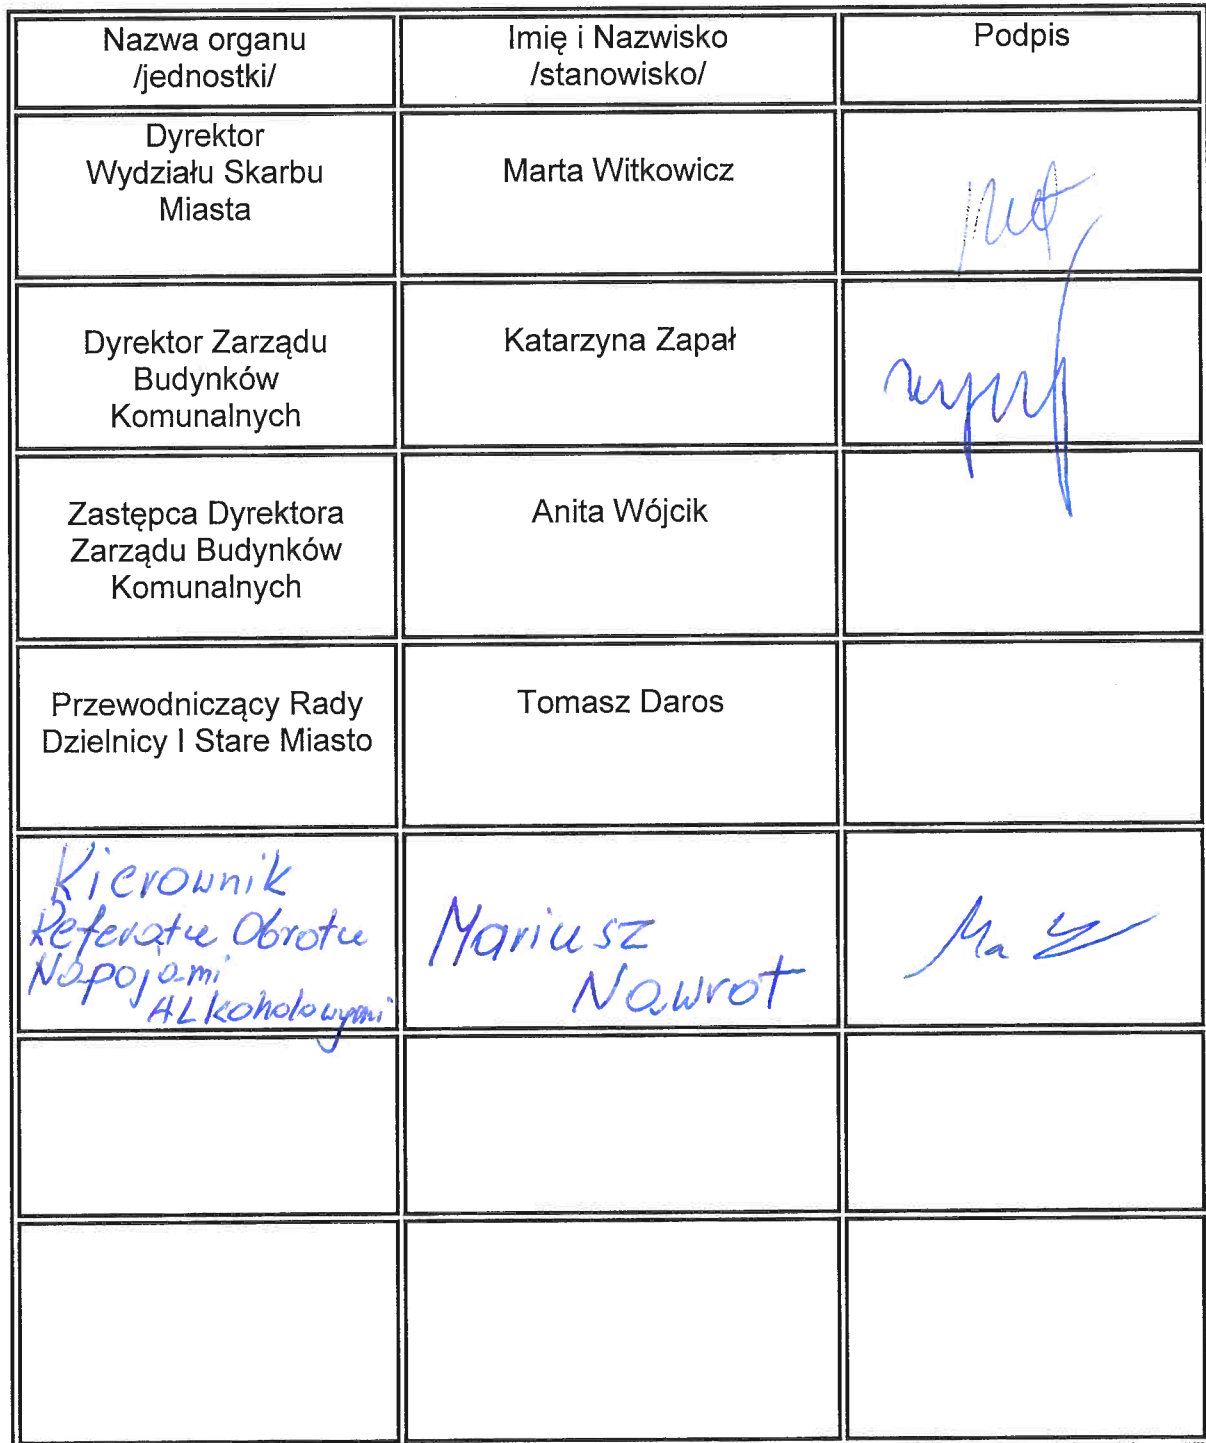 Nazwa organu
/jednostki/
Imię i Nazwisko
/stanowisko/
Podpis
Dyrektor
Wydziału Skarbu
Miasta
Marta Witkowicz
Dyrektor Zarządu
Budynków
Komunalnych
Katarzyna Zapał
Zastępca Dyrektora
Zarządu Budynków
Komunalnych
Anita Wójcik
Przewodniczący Rady
Dzielnicy I Stare Miasto
Tomasz Daros
Kierownik
Referatu Obrotu
Napojami
ALkoholowymi
Mariusz
Nawrot